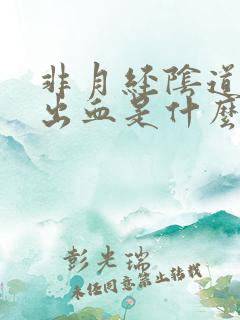 非月经陰道
出血是什麼
彭光瑞
未任同意禁止转载